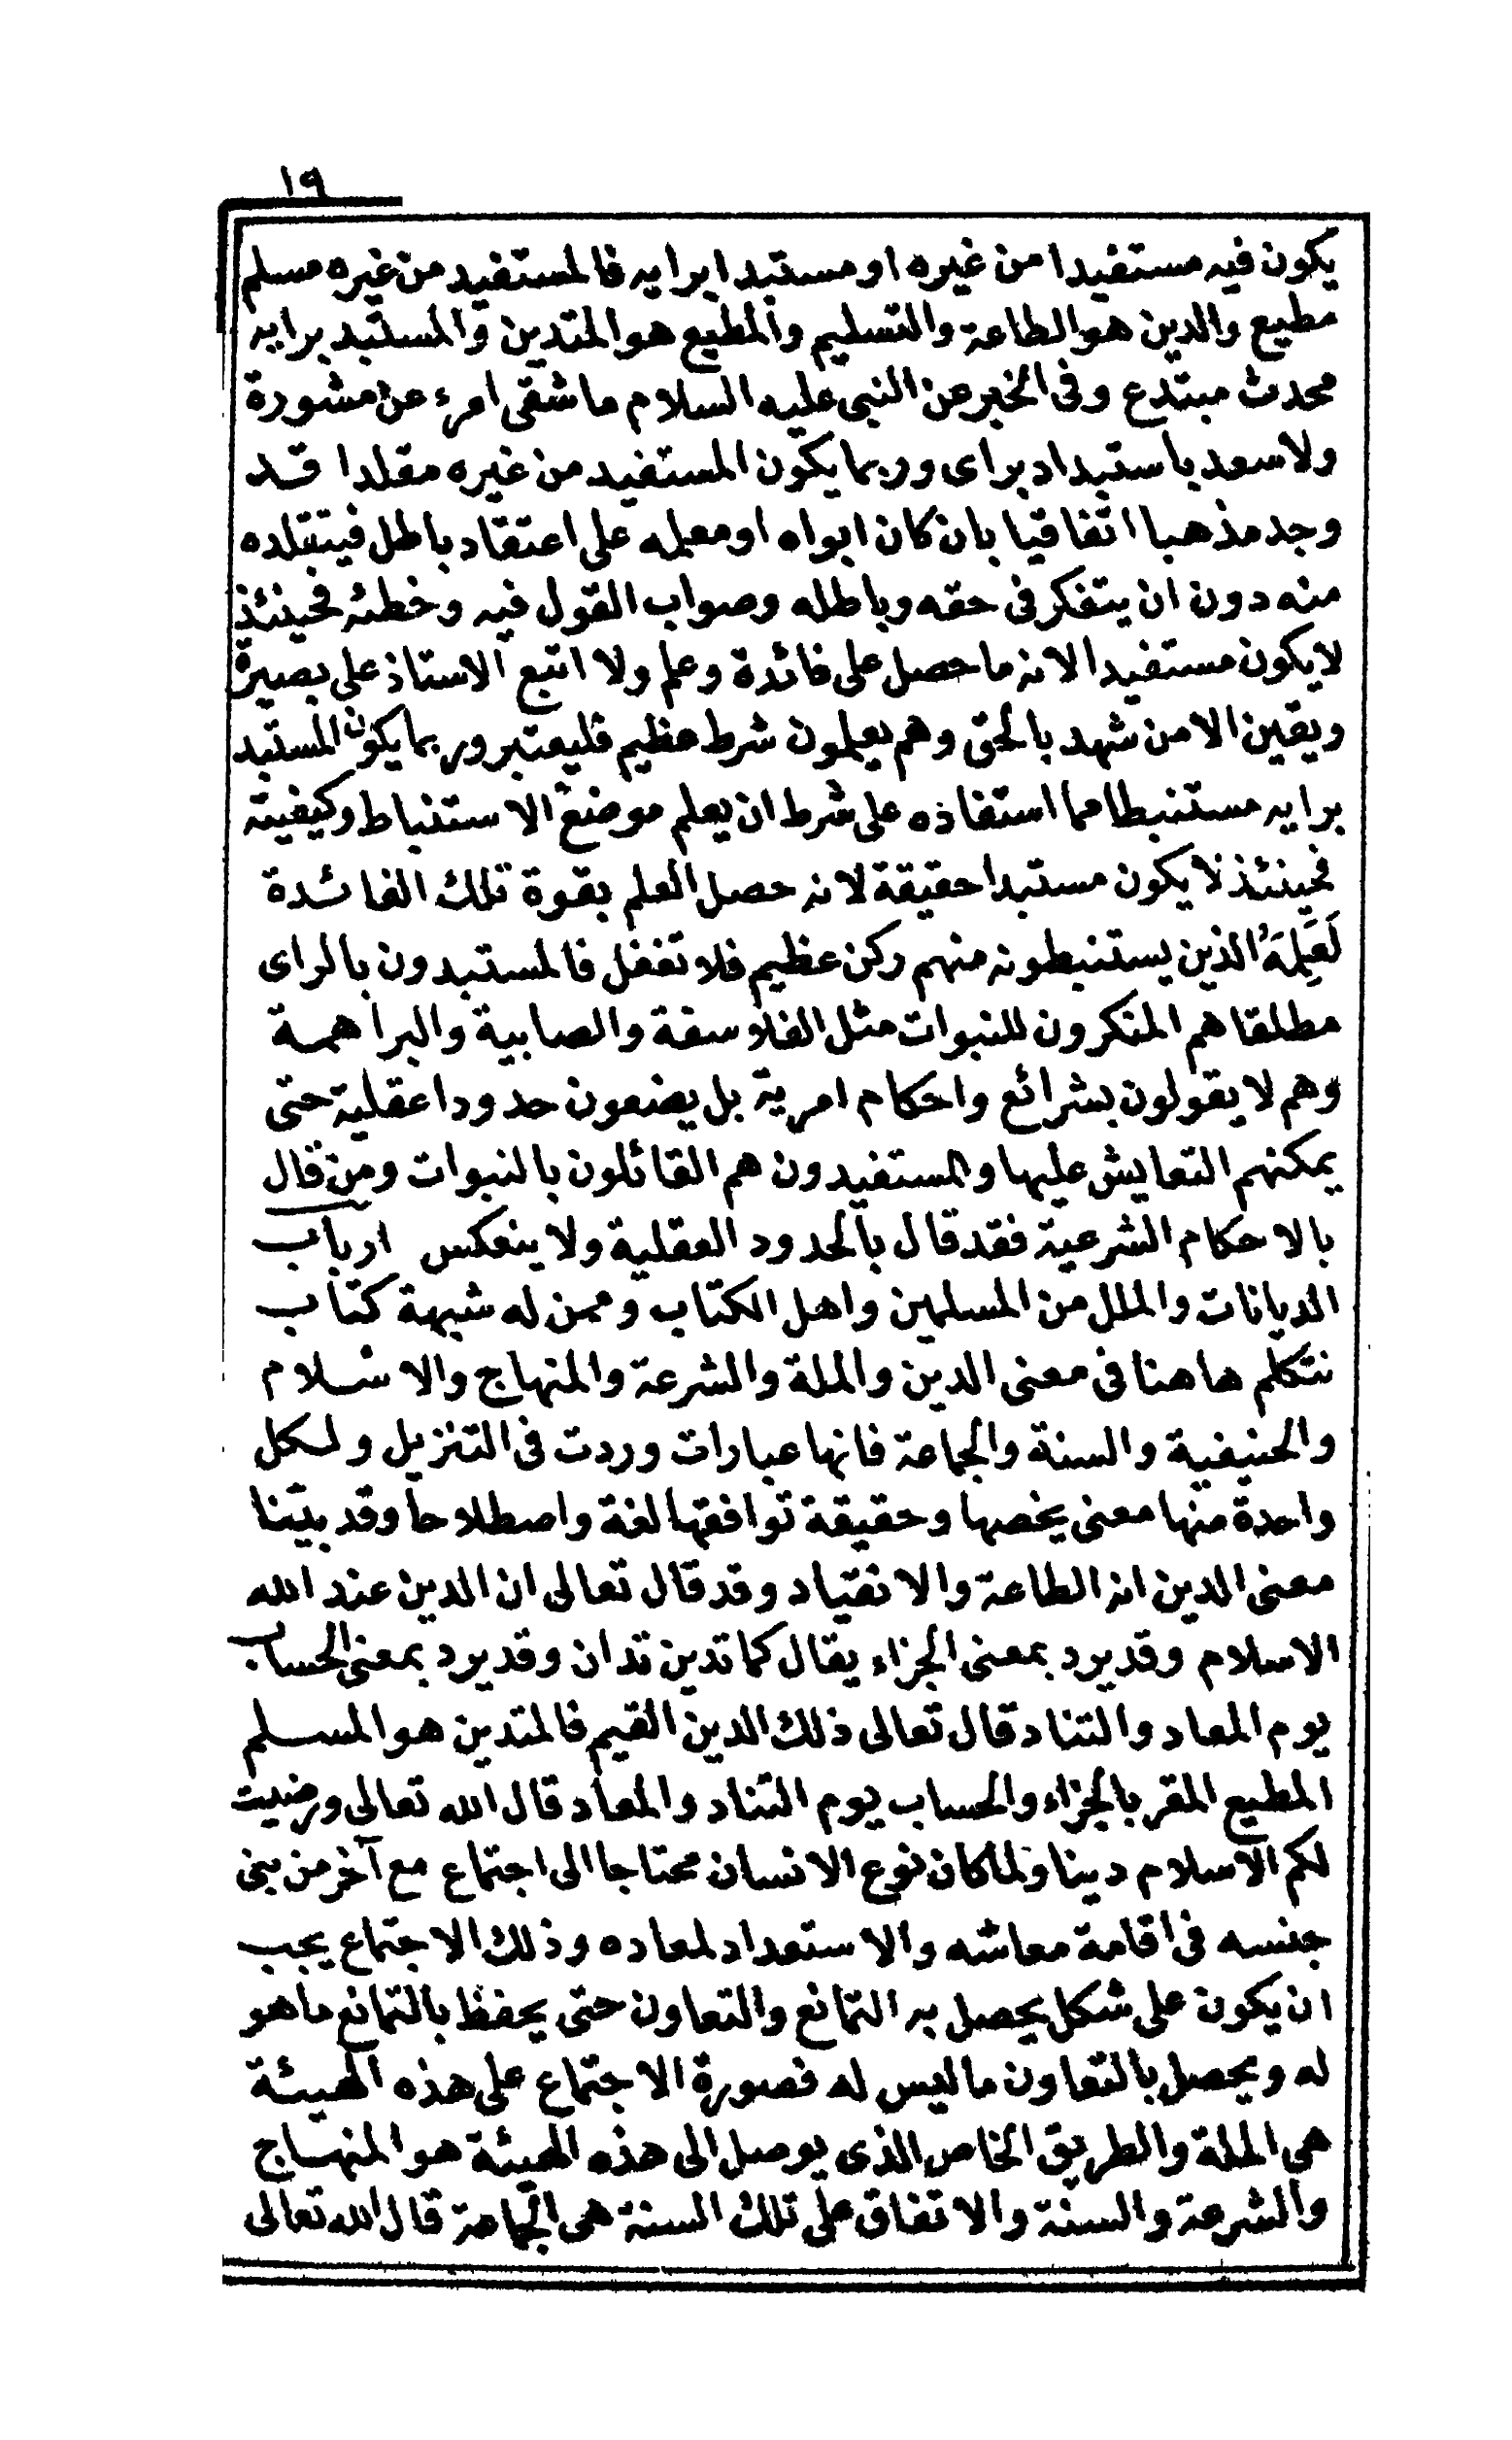 ١٩
يكون فيه مستفيدا من غيره او مستبدا برايه فالمستفيد من غيره مسلم
مطيع والدين هو الطاعة والتسليم والمطيع هو المتدين والمستبد برايه
محدث مبتدع وفى الخبر عن النبى عليه السلام ما شقى امرء عن مشورة
ولا سعد باستبداد براى وربما يكون المستفيد من غيره مقلدا قد
وجد مذهبا اتفاقيا بان كان ابواه او معلمه على اعتقاد باطل فيتقلده
منه دون ان يتفكر فى حقه وباطله وصواب القول فيه وخطئه فحينئذ
لا يكون مستفيدا لانه ما حصل على فائدة وعلم ولا اتبع الاستاذ على بصيرة
ويقين الا من شهد بالحق وهم يعلمون شرط عظيم فليعتبر وربما يكون المستبد
برايه مستنبطا مما استفاذه على شرط ان يعلم موضع الاستنباط وكيفيته
فحينئذ لا يكون مستبدا حقيقة لانه حصل العلم بقوة تلك الفائدة
لَعَلِمَهُ الذين يستنبطونه منهم ركن عظيم فلا تغفل فالمستبدون بالراى
مطلقا هم المنكرون للنبوات مثل الفلاسفة والصابية والبراهمة
وهم لا يقولون بشرائع واحكام امرية بل يضعون حدودا عقلية حتى
يمكنهم التعايش عليها والمستفيدون هم القائلون بالنبوات ومن قال
بالاحكام الشرعية فقد قال بالحدود العقلية ولا ينعكس ارباب
الديانات والملل من المسلمين واهل الكتاب وممن له شبهة كتاب
نتكلم هاهنا فى معنى الدين والملة والشرعة والمنهاج والاسلام
والحنيفية والسنة والجماعة فانها عبارات وردت فى التنزيل ولكل
واحدة منها معنى يخصها وحقيقة توافقها لغة واصطلاحا وقد بيّنا
معنى الدين انه الطاعة والانقياد وقد قال تعالى ان الدين عند الله
الاسلام وقد يرد بمعنى الجزاء يقال كما تدين تدان وقد يرد بمعنى الحساب
يوم المعاد والتناد قال تعالى ذلك الدين القيم فالمتدين هو المسلم
المطيع المقر بالجزاء والحساب يوم التناد والمعاد قال الله تعالى ورضيت
لكم الاسلام دينا ولما كان نوع الانسان محتاجا الى اجتماع مع آخر من بنى
جنسه فى اقامة معاشه والاستعداد لمعاده وذلك الاجتماع يجب
ان يكون على شكل يحصل به التمانع والتعاون حتى يحفظ بالتمانع ما هو
له ويحصل بالتعاون ما ليس له فصورة الاجتماع على هذه الهيئة
هى الملة والطريق الخاص الذى يوصل الى هذه الهيئة هو المنهاج
والشرعة والسنة والاتفاق على تلك السنة هى الجماعة قال الله تعالى